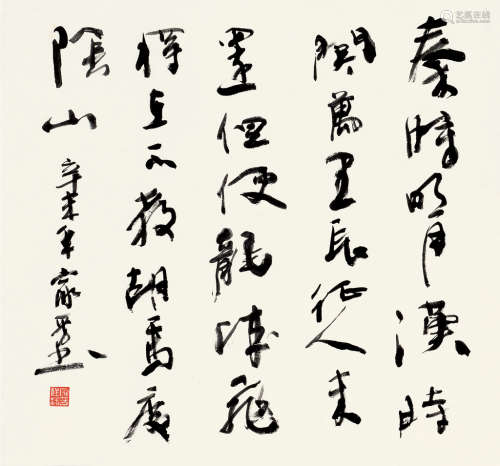 秦時明月漢時
關萬里長征人未
還但使龍城飛
將在不教胡馬度
陰山
辛未年
艺狐在线